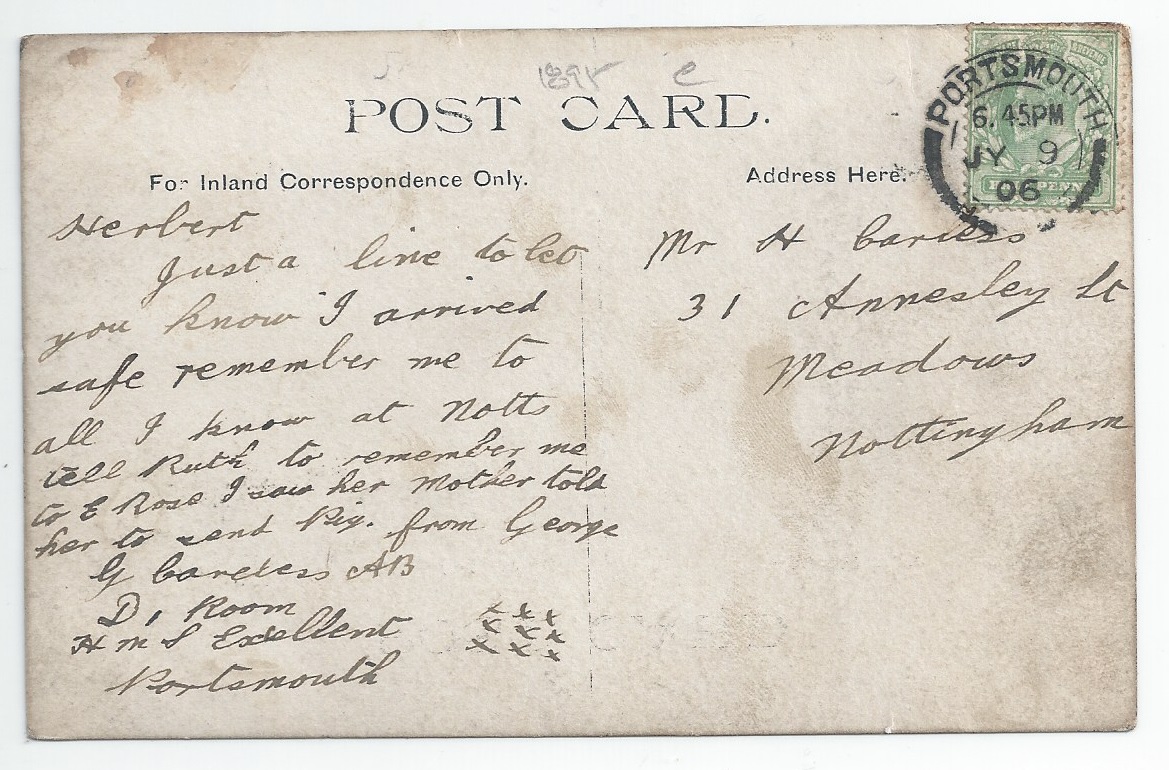 POST CARD.
For Inland Correspondence Only.
Address Here.
PORTSMOUTH
6.45PM
JY 9
06
Herbert
Just a line to let
you know I arrived
safe remember me to
all I know at Notts
tell Ruth to remember me
to E Rose I saw her Mother told
her to send Pig. from George
G Careless AB
D1 Room
H M S Exellent
Portsmouth
x x x
x x x
x x x
Mr H Careless
31 Annesley St
Meadows
Nottingham